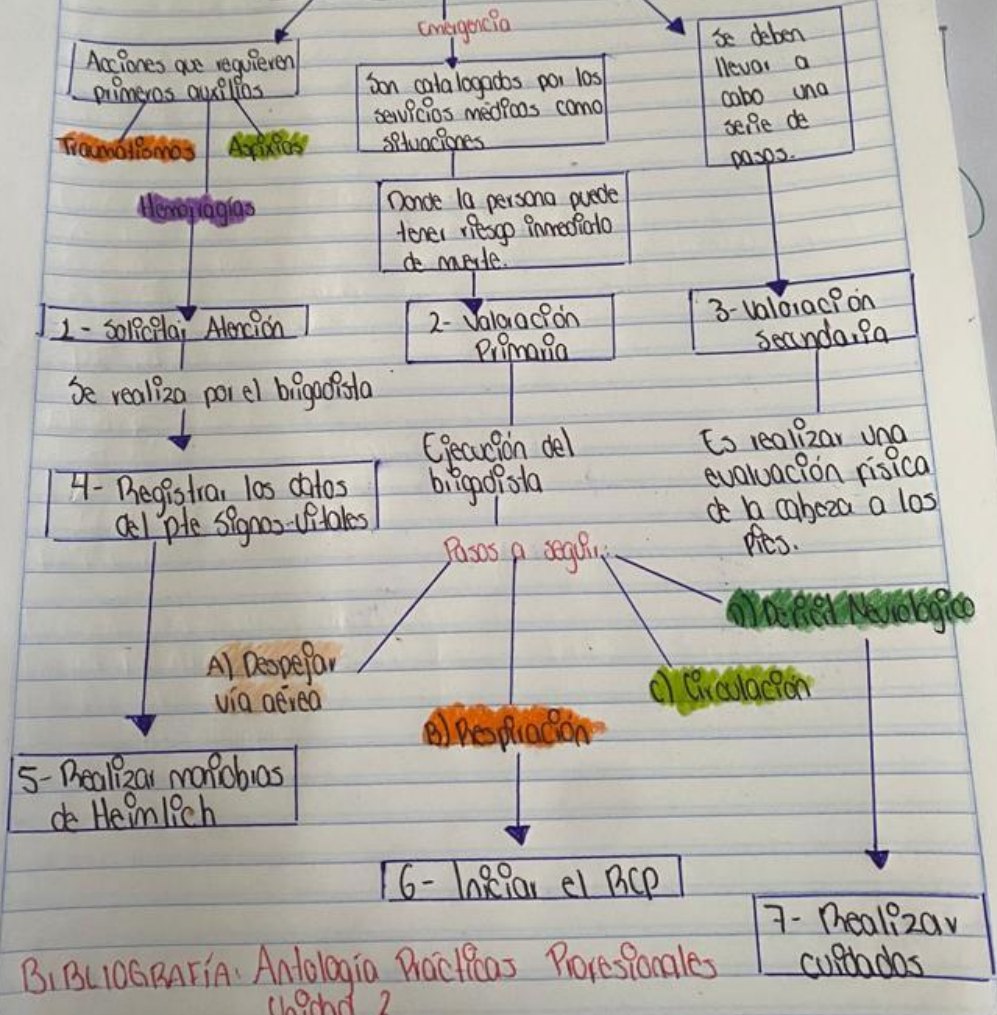 Emergencia
Acciones que requieren
primeros auxilios
Traumatismos
Asfixias
Hemorragias
Son catalogados por los
servicios médicos como
situaciones
Donde la persona puede
tener riesgo inmediato
de muerte.
Se deben
llevar a
cabo una
serie de
pasos.
1- Solicitar Atención
Se realiza por el brigadista
2- Valoración
Primaria
Ejecución del
brigadista
3- Valoración
Secundaria
Es realizar una
evaluación física
de la cabeza a los
pies.
4- Registrar los datos
del pte signos-vitales
Pasos a seguir:
A) Despejar
vía aérea
B) Respiración
C) Circulación
D) Deficit Neurologico
5- Realizar maniobras
de Heimlich
6- Iniciar el RCP
7- Realizar
cuidados
BIBLIOGRAFÍA: Antología Prácticas Profesionales
Unidad 2